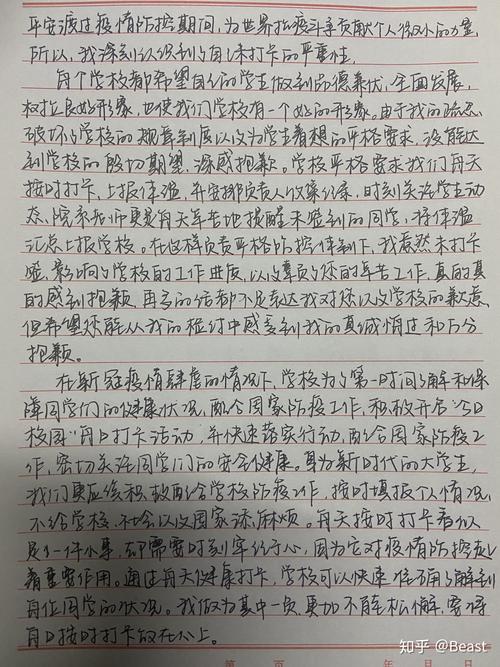 平安渡过疫情防控期间，为世界抗疫斗争贡献个人微小的力量，
所以，我深刻认识到自己未打卡的严重性。
每个学校都希望自己的学生做到品德兼优，全面发展，
树立良好形象，也使我们学校有一个好的形象。由于我的疏忽
破坏了学校的规章制度以及为学生着想的严格要求，没能达
到学校的殷切期望，深感抱歉。学校严格要求我们每天
按时打卡，上报体温，并安排负责人收集纪录，时刻关注学生动
态，院系老师更是每天辛苦地提醒未签到的同学，将体温
汇总上报学校。在这样负责严格防控体制下，我竟然未打卡
，影响了学校的工作进展，以及辜负了您的辛苦工作，真的真
的感到抱歉，再多的话都不足表达我对您以及学校的歉意，
但希望您能从我的检讨中感受到我的真诚悔过和万分
抱歉。
在新冠疫情肆虐的情况下，学校为了第一时间了解和保
障同学们的健康状况，配合国家防疫工作，积极开启“今日
校园”每日打卡活动，并快速落实行动，配合国家防疫工
作，密切关注同学们的安全健康。身为新时代的大学生，
我们更应该积极配合学校防疫工作，按时填报个人情况，
不给学校、社会以及国家添麻烦。每天按时打卡看似
是一件小事，却需要时刻牢记于心，因为它对疫情防控起
着重要作用。通过每天健康打卡，学校可以快速准确了解到
每位同学的状况。我做为其中一员，更加不能松懈，要将
每日按时打卡放在心上。
第 页 年 月 日
知乎 @Beast